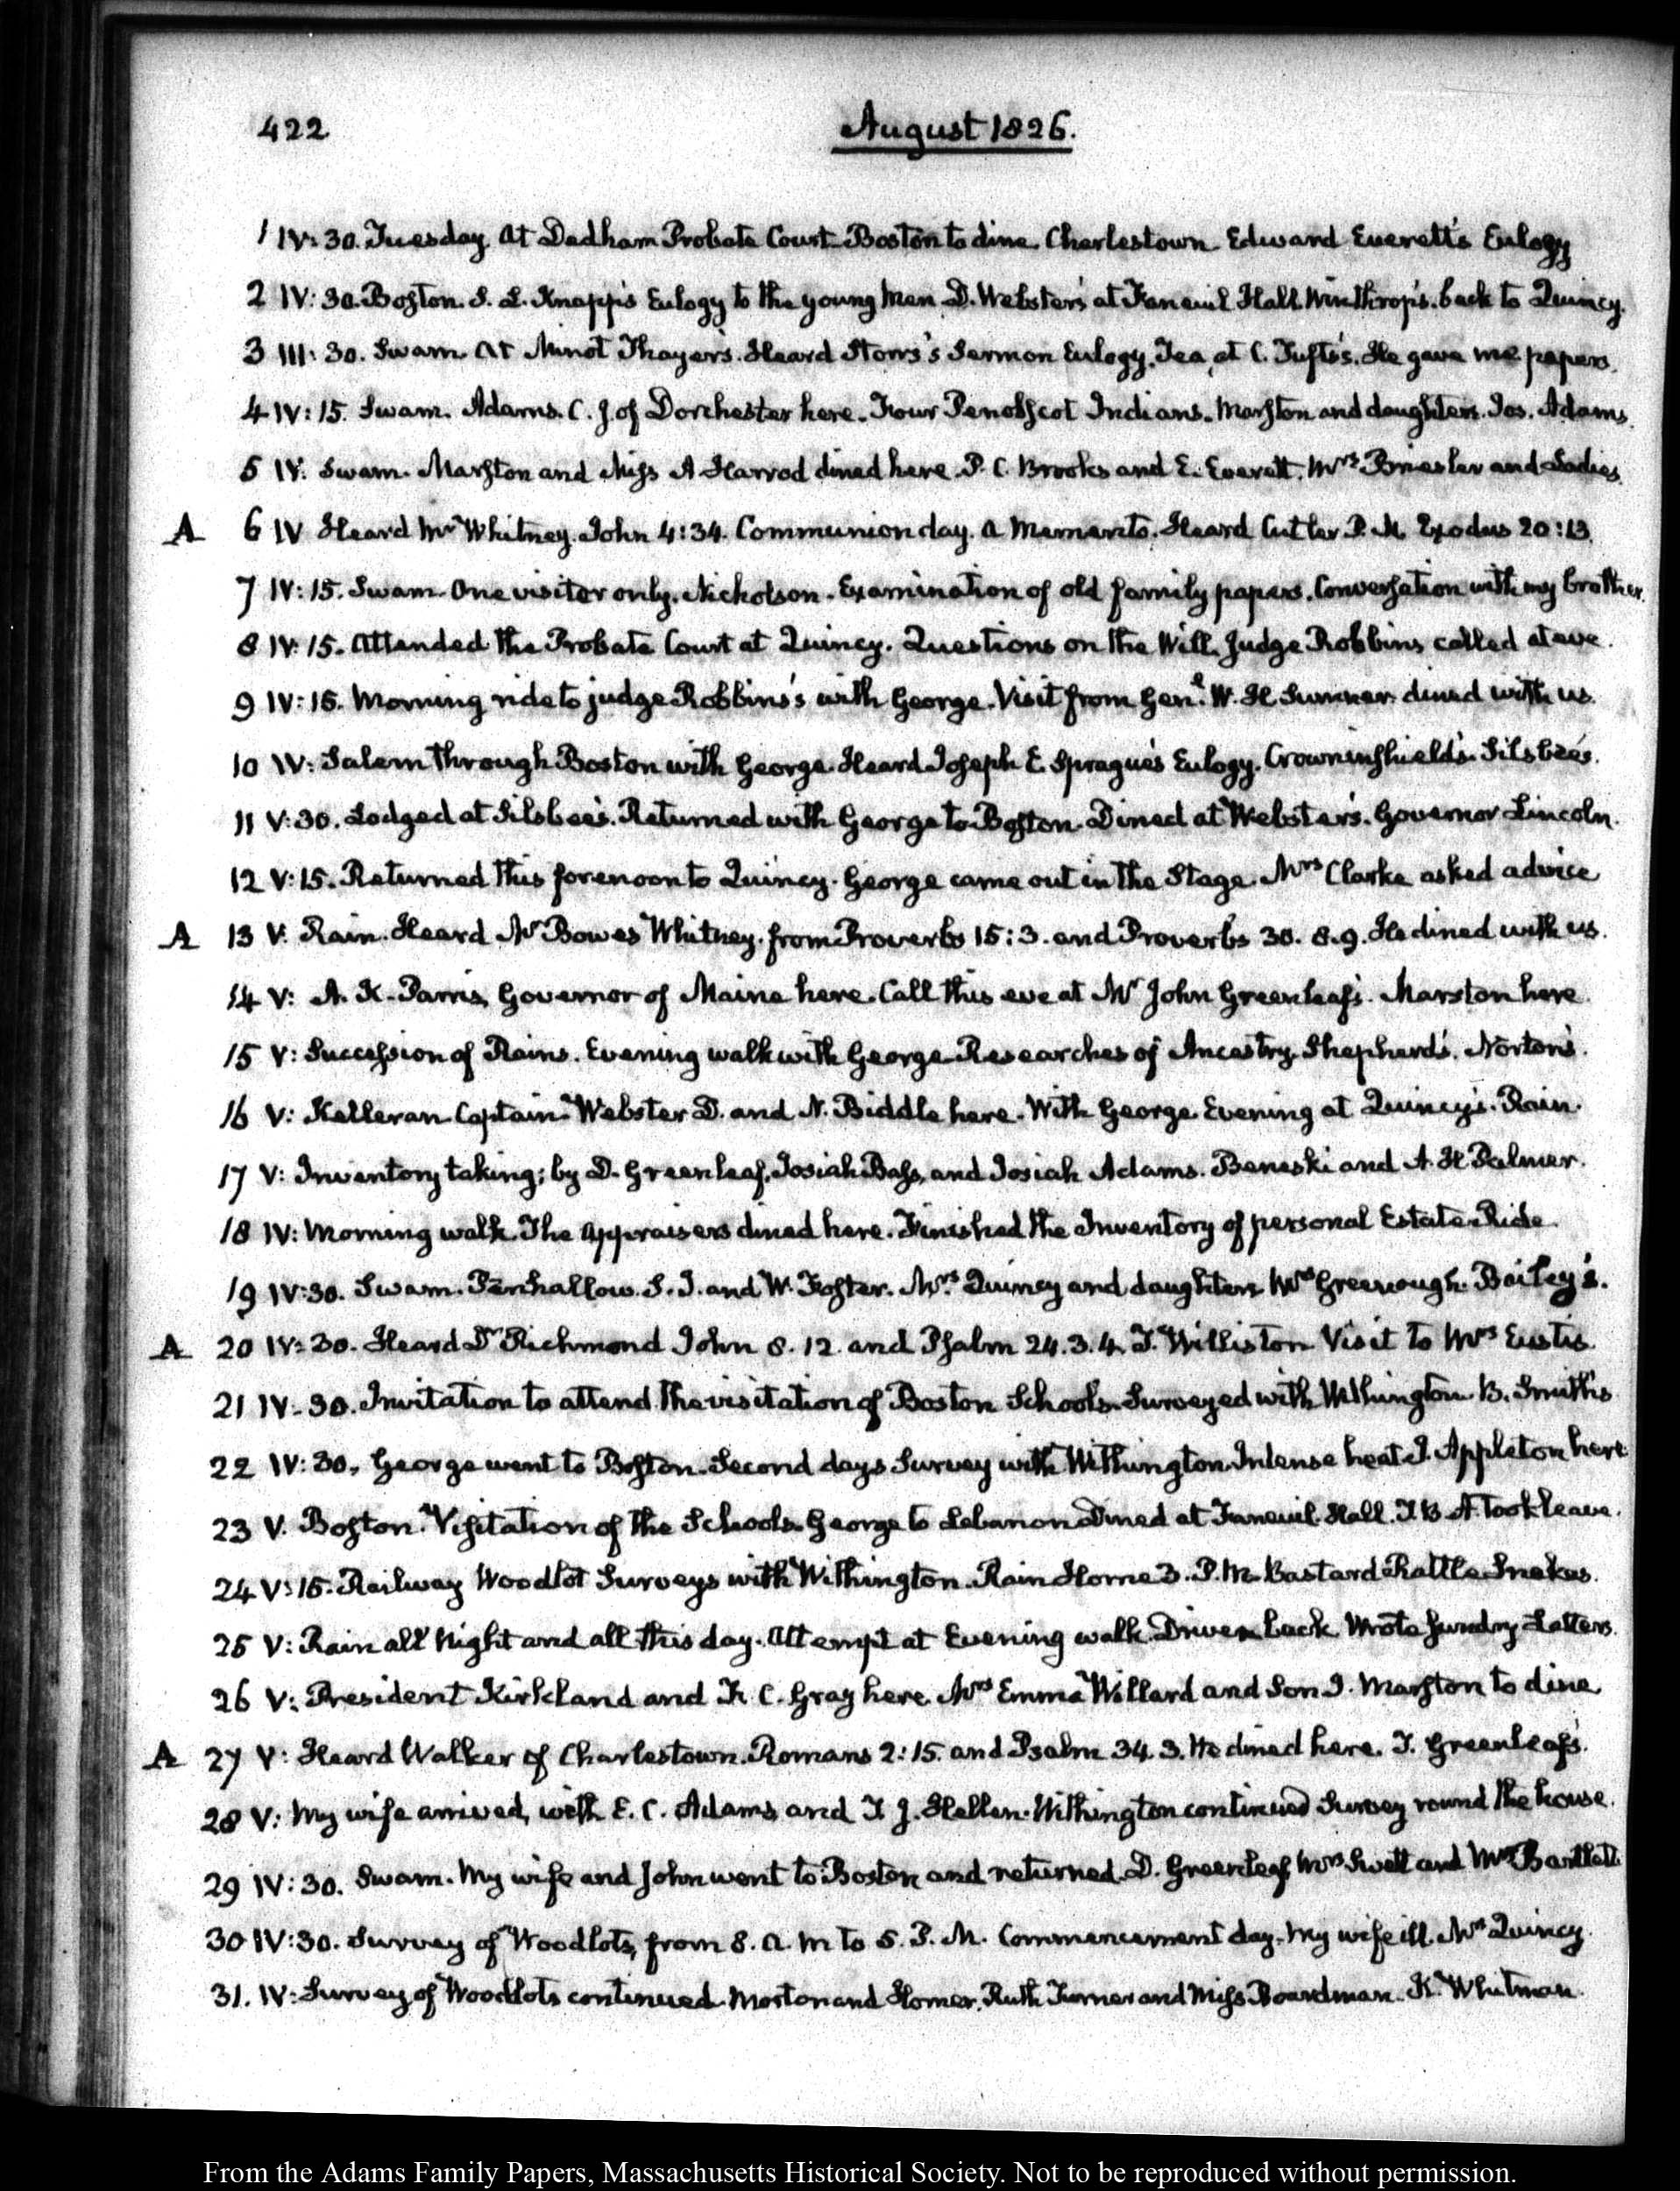 422
August 1826.
1 IV:30. Tuesday. At Dedham Probate Court. Boston to dine. Charlestown. Edward Everett's Eulogy
2 IV:30. Boston. S. L. Knapp's Eulogy to the young men. D. Webster's at Faneuil Hall. Winthrop's. back to Quincy.
3 III:30. Swam. At Minot Thayer's. Heard Storrs's Sermon Eulogy. Tea at C. Tufts's. He gave me papers.
4 IV:15. Swam. Adams. C. J. of Dorchester here. Four Penobscot Indians. Marston and daughters. Jos. Adams.
5 IV: Swam. Marston and Miss A Harrod dined here. P. C. Brooks and E. Everett. Mrs Briesler and Ladies.
A 6 IV Heard Mr Whitney. John 4:34. Communion day. a Memento. Heard Cutler P. M. Exodus 20:13.
7 IV:15. Swam. One visiter only. Nicholson. Examination of old family papers. Conversation with my brother.
8 IV:15. Attended the Probate Court at Quincy. Questions on the Will. Judge Robbins called at eve.
9 IV:15. Morning ride to judge Robbins's with George. Visit from Genl. W. H Sumner. dined with us.
10 IV: Salem through Boston with George. Heard Joseph E. Sprague's Eulogy. Crowninshield's. Silsbee's.
11 V:30. Lodged at Silsbee's. Returned with George to Boston. Dined at Webster's. Governor Lincoln.
12 V:15. Returned this forenoon to Quincy. George came out in the Stage. Mrs Clarke asked advice
A 13 V. Rain. Heard Mr Bowes Whitney. from Proverbs 15:3. and Proverbs 30. 8.9. He dined with us.
14 V: A. K. Parris, Governor of Maine here. Call this eve at Mr John Greenleaf's. Marston here.
15 V: Succession of Rains. Evening walk with George. Researches of Ancestry. Shepherd's. Norton's.
16 V: Kelleran Captain. Webster D. and N. Biddle here. With George. Evening at Quincy's. Rain.
17 V: Inventory taking; by D. Greenleaf, Josiah Bass, and Josiah Adams. Beneski and A. H Palmer.
18 IV: Morning walk. The Appraisers dined here. Finished the Inventory of personal Estate. Ride.
19 IV:30. Swam. Penhallow. S. J. and W. Foster. Mrs. Quincy and daughters Mrs Greenough. Bailey's.
A 20 IV:30. Heard Dr Richmond John 8. 12. and Psalm 24. 3. 4. T. Williston. Visit to Mrs Eustis.
21 IV-30. Invitation to attend the visitation of Boston Schools. Surveyed with Withington. B. Smith's
22 IV:30. George went to Boston. Second days Survey with Withington. Intense heat. J. Appleton here
23 V. Boston. Visitation of the Schools. George to Lebanon. Dined at Faneuil Hall. T. B. A. took leave.
24 V:15. Railway Woodlot Surveys with Withington. Rain Home 3. P. M. Bastard Rattle Snakes.
25 V: Rain all Night and all this day. Attempt at Evening walk. Driven back. Wrote sundry Letters.
26 V: President Kirkland and F. C. Gray here. Mrs Emma Willard and Son J. Marston to dine
A 27 V: Heard Walker of Charlestown. Romans 2:15. and Psalm 34. 3. He dined here. T. Greenleaf's.
28 V: My wife arrived, with E. C. Adams, and T J. Hellen. Withington continued Survey round the house.
29 IV:30. Swam. My wife and John went to Boston and returned. D. Greenleaf Mrs Swett and Mrs Bartlett
30 IV:30. Survey of Woodlots, from 8. A. M to 5. P. M. Commencement day. My wife ill. Mrs Quincy.
31. IV: Survey of Woodlots continued. Morton and Homer. Ruth Turner and Miss Boardman. K. Whitman.
From the Adams Family Papers, Massachusetts Historical Society. Not to be reproduced without permission.